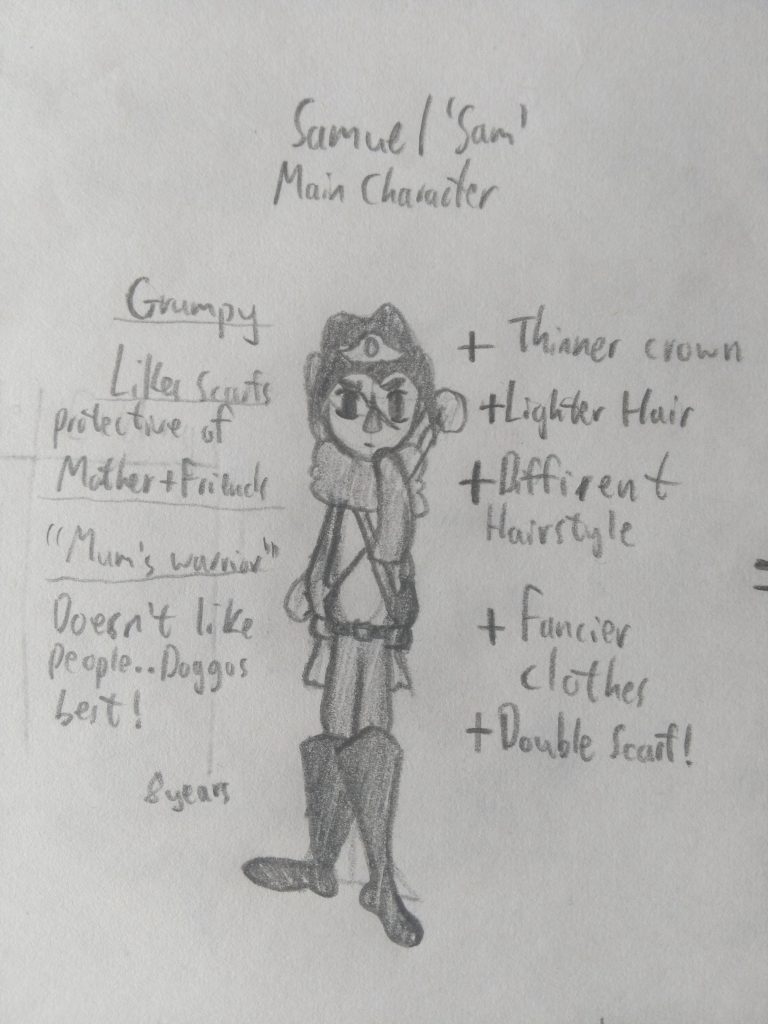 Samuel 'Sam'
Main Character
Grumpy
Likes Scarfs
protective of
Mother+Friends
"Mum's warrior"
Doesn't like
people..Doggos
best!
8 years
+ Thinner crown
+Lighter Hair
+Diffirent
Hairstyle
+ Fancier
clothes
+Double Scarf!